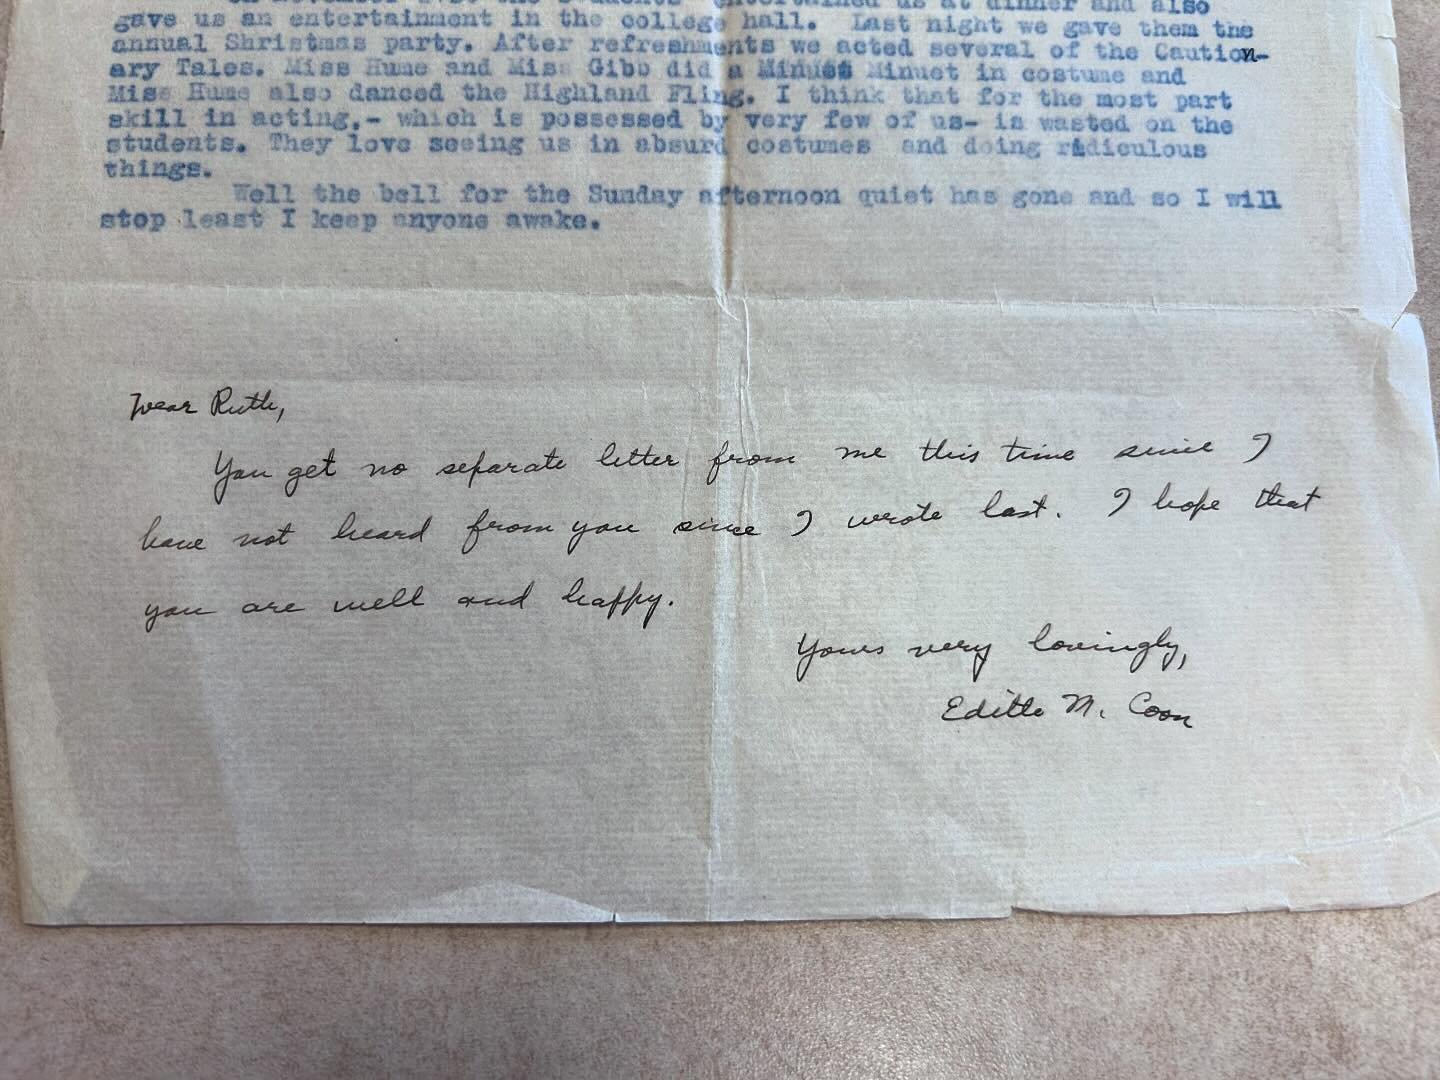 entertained us at dinner and also
gave us an entertainment in the college hall. Last night we gave them the
annual Shristmas party. After refreshments we acted several of the Caution-
ary Tales. Miss Hume and Miss Gibb did a Minuet Minuet in costume and
Miss Hume also danced the Highland Fling. I think that for the most part
skill in acting,- which is possessed by very few of us- is wasted on the
students. They love seeing us in absurd costumes and doing ridiculous
things.
Well the bell for the Sunday afternoon quiet has gone and so I will
stop least I keep anyone awake.
Dear Ruth,
You get no separate letter from me this time since I
have not heard from you since I wrote last. I hope that
you are well and happy.
Yours very lovingly,
Edith M. Coon